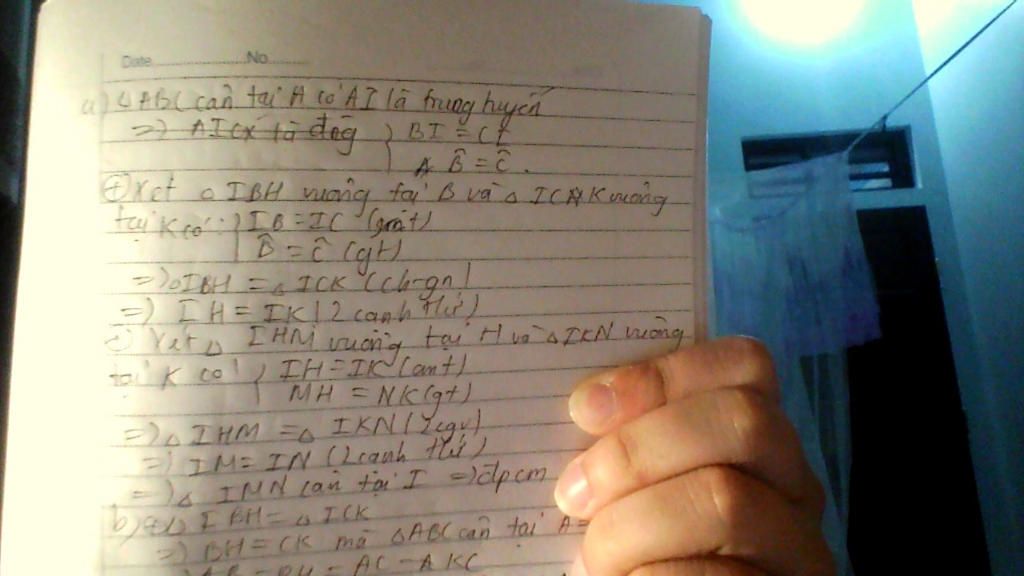 Date No
a) △ABC cân tại A có AI là trung tuyến
=> AICX là đ BI = CI
A B̂ = Ĉ.
+) Xét △ IBH vuông tại B và △ ICK vuông
tại K có: IB = IC (gt)
B̂ = Ĉ (gt)
=> △IBH = △ ICK (ch-gn)
=> IH = IK (2 cạnh t/ứ)
+) Xét △ IHM vuông tại H và △IKN vuông
tại K có: IH = IK (cmt)
MH = NK (gt)
=> △ IHM = △ IKN (2cgv)
=> IM = IN (2 cạnh t/ứ)
=> △ IMN cân tại I => đpcm
b) △ IBH = △ ICK
=> BH = CK mà △ABC cân tại A =
AB - BH = AC - AKC